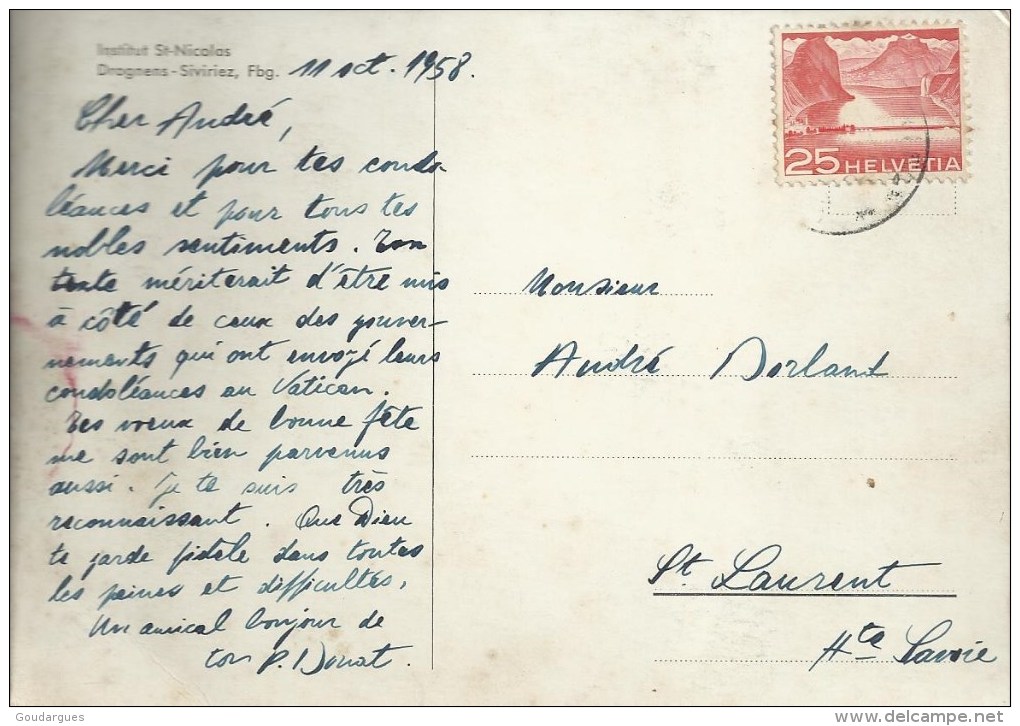 Institut St-Nicolas
Drognens-Siviriez, Fbg. 11 oct. 1958.
Cher André,
Merci pour tes condo-
léances et pour tous tes
nobles sentiments. Ton
texte mériterait d'être mis
à côté de ceux des gouver-
nements qui ont envoyé leurs
condoléances au Vatican.
Tes voeux de bonne fête
me sont bien parvenus
aussi. Je te suis très
reconnaissant. Que Dieu
te garde fidèle dans toutes
les peines et difficultés.
Un amical bonjour de
ton P. Donat.
25 HELVETIA
Monsieur
André Dorland
St. Laurent
Hte Savoie
Goudargues
www.delcampe.net